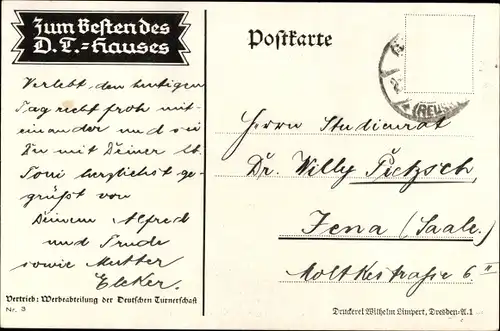 Zum Besten des
D.T.=Hauses
Postkarte
(REUSS)
Verlebt den heutigen
Tag recht froh mit-
einander und sei
Du mit Deiner lb.
Toni herzlichst ge-
grüßt von
Deinem Alfred
und Trude
sowie Mutter
Elcker.
Herrn Studienrat
Dr. Willy Pietzsch,
Jena (Saale.)
Moltkestraße 6 II
Vertrieb: Werbeabteilung der Deutschen Turnerschaft
Nr. 3
Druckerei Wilhelm Limpert, Dresden-A.1